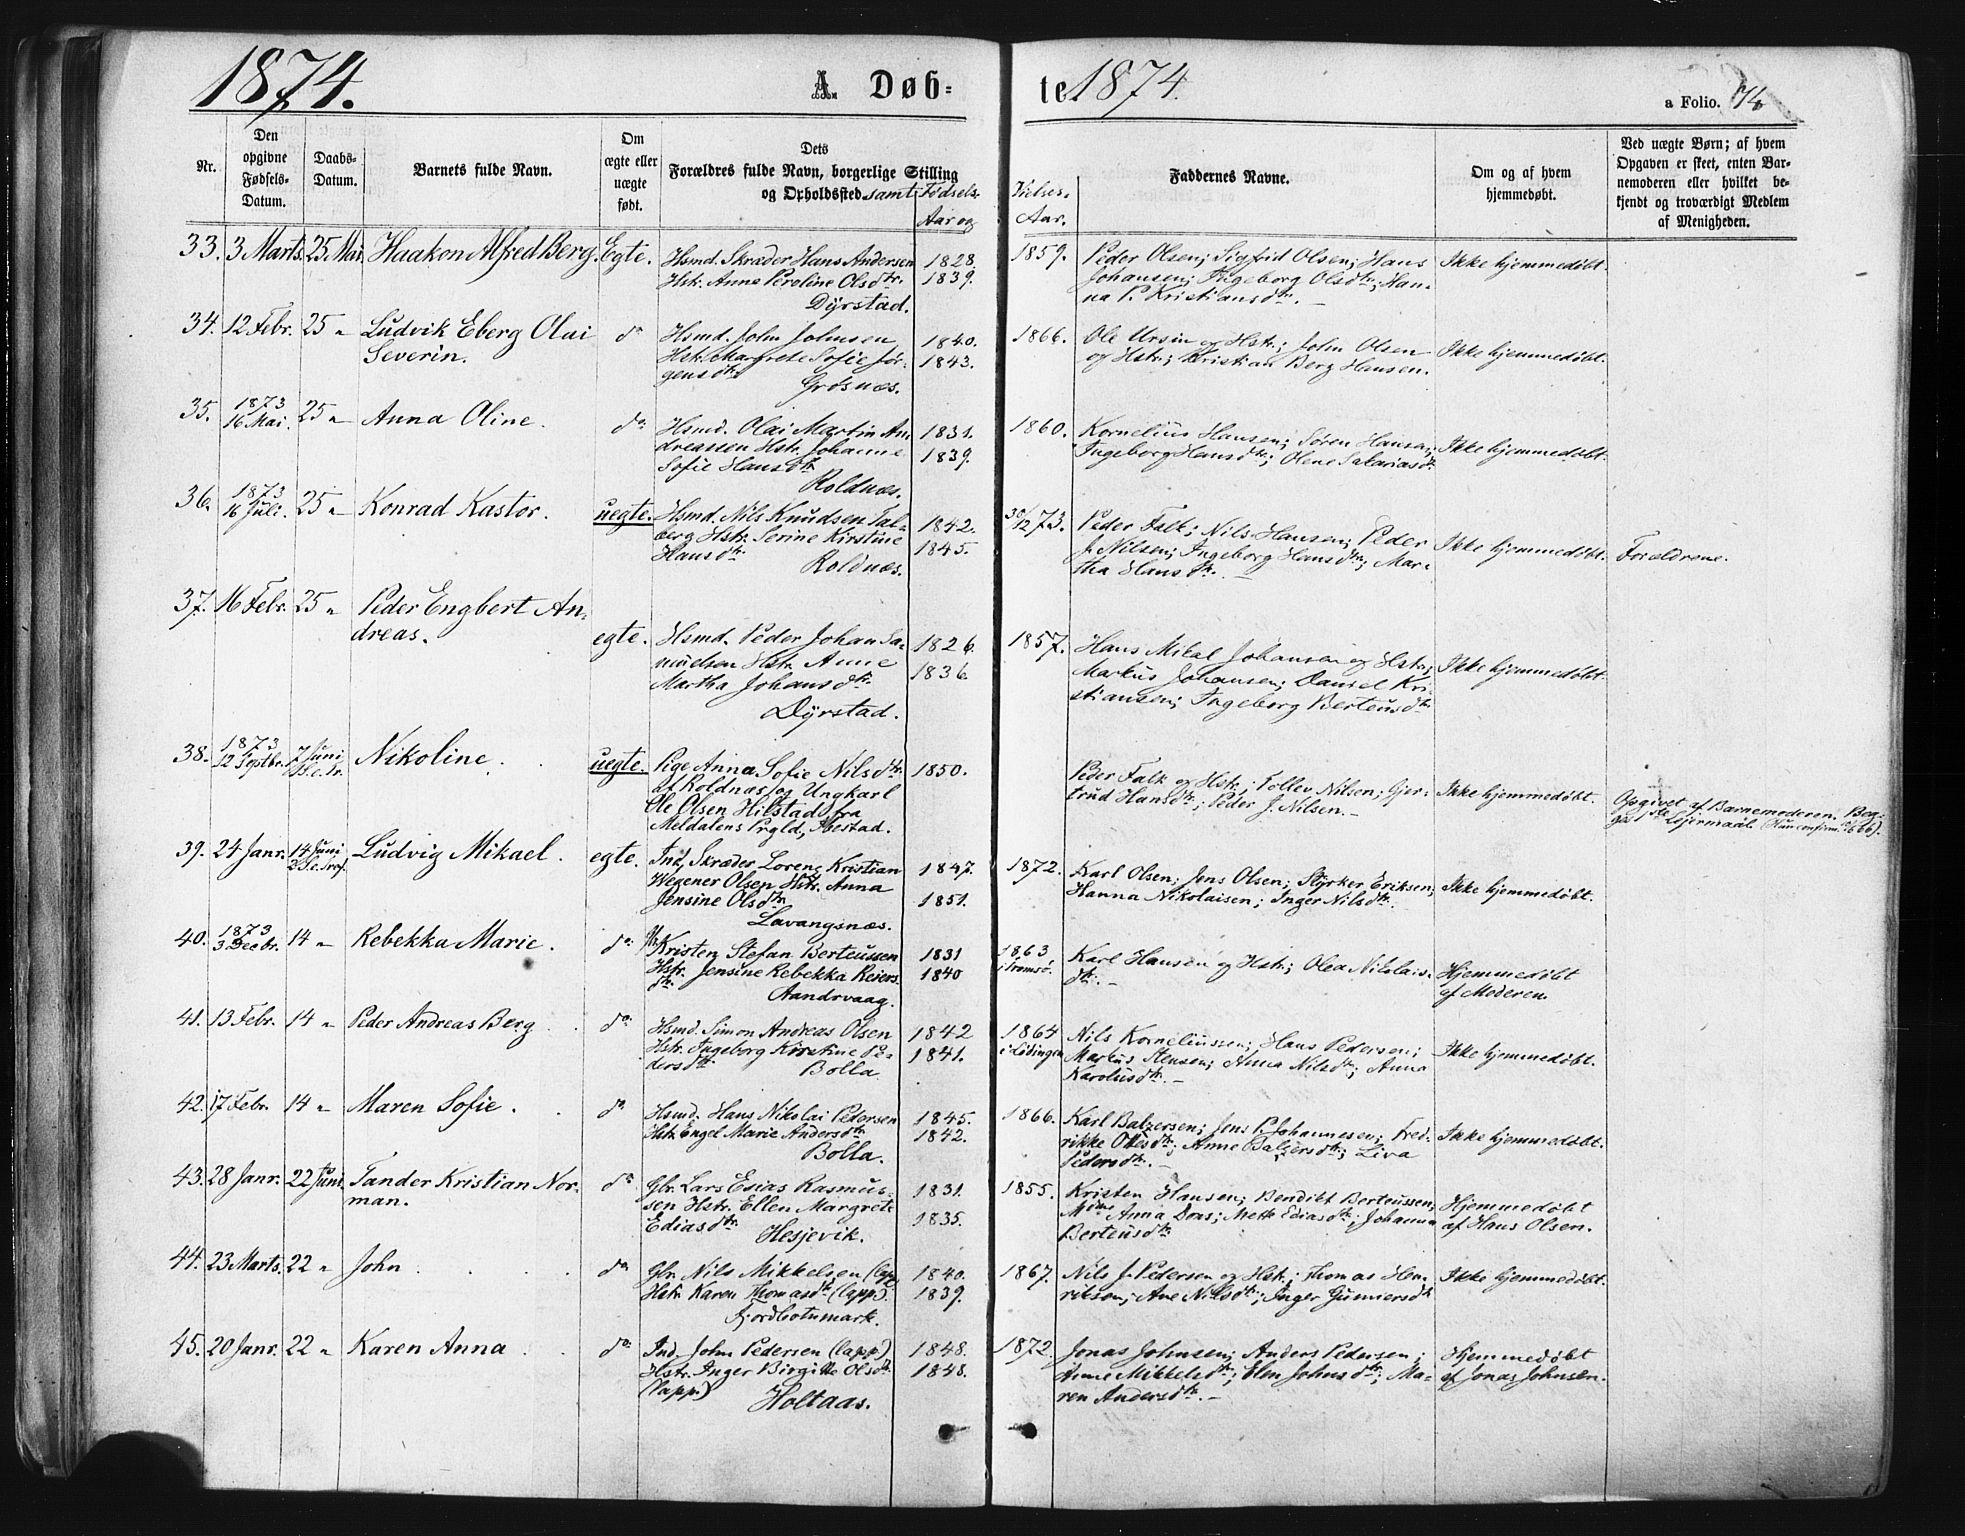 1874.
A Døb=
te 1874.
a Folio. 74
Nr.
Den
opgivne
Fødsels-
Datum.
Daabs-
Datum.
Barnets fulde Navn.
Om
ægte eller
uægte
født.
Dets
Forældres fulde Navn, borgerlige Stilling
og Opholdssted samt Fødsels-
Aar og
Vielses-
Aar.
Faddernes Navne.
Om og af hvem
hjemmedøbt.
Ved uægte Børn; af hvem
Opgaven er skeet, enten Bar-
nemoderen eller hvilket be-
kjendt og troværdigt Medlem
af Menigheden.
33. 3 Marts. 25 Mai. Haakon Alfred Berg. Egte. Hsmd. Skræder Hans Andersen 1828.
Hstr. Anne Peroline Olsdtr. 1839.
Dyrstad.
1859. Peder Olsen; Sigfrid Olsen; Hans
Johansen; Ingeborg Olsdtr; Han-
na P. Kristiansdtr. —
Ikke hjemmedøbt.
34. 12 Febr. 25 " Ludvik Eberg Olai
Severin.
do Hsmd. John Johnsen 1840.
Hstr. Margrete Sofie Jør- 1843.
gensdtr.
Grøsnæs.
1866. Ole Ursin og Hstr.; John Olsen
og Hstr.; Kristian Berg Hansen.
Ikke hjemmedøbt.
35. 1873
16 Mai. 25 " Anna Oline.
do Hsmd. Olai Martin An- 1831.
dreassen Hstr. Johanne 1839.
Sofie Hansdtr
Roldnæs.
1860. Kornelius Hansen; Søren Hansen;
Ingeborg Hansdtr; Olene Sakariasdtr
Ikke hjemmedøbt.
36. 1873
16 Juli. 25 " Konrad Kastor. uegte. Hsmd. Nils Knudsen Sal- 1842.
berg Hstr. Serine Kirstine 1845.
Hansdtr
Roldnæs.
30/12 73. Peder Falk; Nils Hansen; Peder
J. Nilsen; Ingeborg Hansdtr; Mar-
tha Hansdtr. —
Ikke hjemmedøbt. Forældrene.
37. 16 Febr. 25 " Peder Engbert An-
dreas.
egte. Hsmd. Peder Johan Sa- 1826.
muelsen Hstr. Anne 1836.
Martha Johansdtr.
Dyrstad.
1857. Hans Mikal Johansen og Hstr.;
Markus Johansen; Daniel Kri-
stiansen; Ingeborg Berteusdtr
Ikke hjemmedøbt.
38. 1873
12 Septbr. 7 Juni
Nikoline. uegte. Pige Anna Sofie Nilsdtr. 1850.
af Roldnæs og Ungkarl
Ole Olsen Hilstad, fra
Meldalens Prgld,
Peder Falk og Hstr.; Tollev Nilsen; Gjer-
trud Hansdtr; Peder J. Nilsen. —
Ikke hjemmedøbt.
Opgivet af Barnemoderen. Beg-
ges 1ste Leiermaal. (Hun confirm. 1866).
39. 24 Janr. 14 Juni
Ludvig Mikael. egte. Ind. Skræder Lorenz Kristian 1847.
Wegener Olsen Hstr. Anna
Jensine Olsdtr. 1851.
Lavangsnæs.
1872. Karl Olsen; Jens Olsen; Styrker Eriksen;
Hanna Nikolaisen; Inger Nilsdtr. —
Ikke hjemmedøbt.
40. 1873
3 Decbr. 14 " Rebekka Marie.
do Kristen Stefan Berteussen 1831
Hstr. Jensine Rebekka Reiers- 1840
dtr.
Aandrvaag.
1863
i Tromsø. Karl Hansen og Hstr.; Olea Nikolais-
dtr. —
Hjemmedøbt
af Moderen.
41. 13 Febr. 14 " Peder Andreas Berg
do Hsmd. Simon Andreas Olsen 1842
Hstr. Ingeborg Kirstine Pe- 1841.
dersdtr.
Bolla.
1864
i Lødingen Nils Korneliussen; Hans Pedersen;
Markus Stensen; Anna Nilsdtr; Anna
Karolusdtr. —
Ikke hjemmedøbt.
42. 17 Febr. 14 " Maren Sofie.
do Hsmd. Hans Nikolai Pedersen 1845.
Hstr. Engel Marie Andersdtr. 1842.
Bolla.
1866. Karl Balzersen; Jens P. Johannesen; Fred-
rikke Ottesdtr; Anne Balzersdtr; Liva
Pedersdtr. —
Ikke hjemmedøbt.
43. 28 Janr. 22 Juni. Tander Kristian Nor-
man.
do Gbr. Lars Esias Rasmus- 1831.
sen Hstr. Ellen Margrete
Ediasdtr. 1835.
Hesjevik.
1855. Kristen Hansen; Bendikt Berteussen;
Mdme Anna Dons; Mette Ediasdtr; Johanna
Berteusdtr
Hjemmedøbt
af Hans Olsen.
44. 23 Marts. 22 " John
do Gbr. Nils Mikkelsen (lapp) 1840.
Hstr. Karen Thomasdtr (lapp). 1839.
Fjordbotnmark.
1867. Nils J. Pedersen og Hstr.; Thomas Hen-
riksen; Ane Nilsdtr; Inger Gunnersdtr
Ikke hjemmedøbt.
45. 20 Janr. 22 " Karen Anna
do Ind. John Pedersen (lapp) 1848.
Hstr. Inger Birgitte Olsdtr 1848.
(lapp)
Holtaas.
1872. Jonas Johnsen; Anders Pedersen;
Anne Mikkelsdtr; Elen Johnsdtr; Ma-
ren Andersdtr. —
Hjemmedøbt
af Jonas Johnsen.